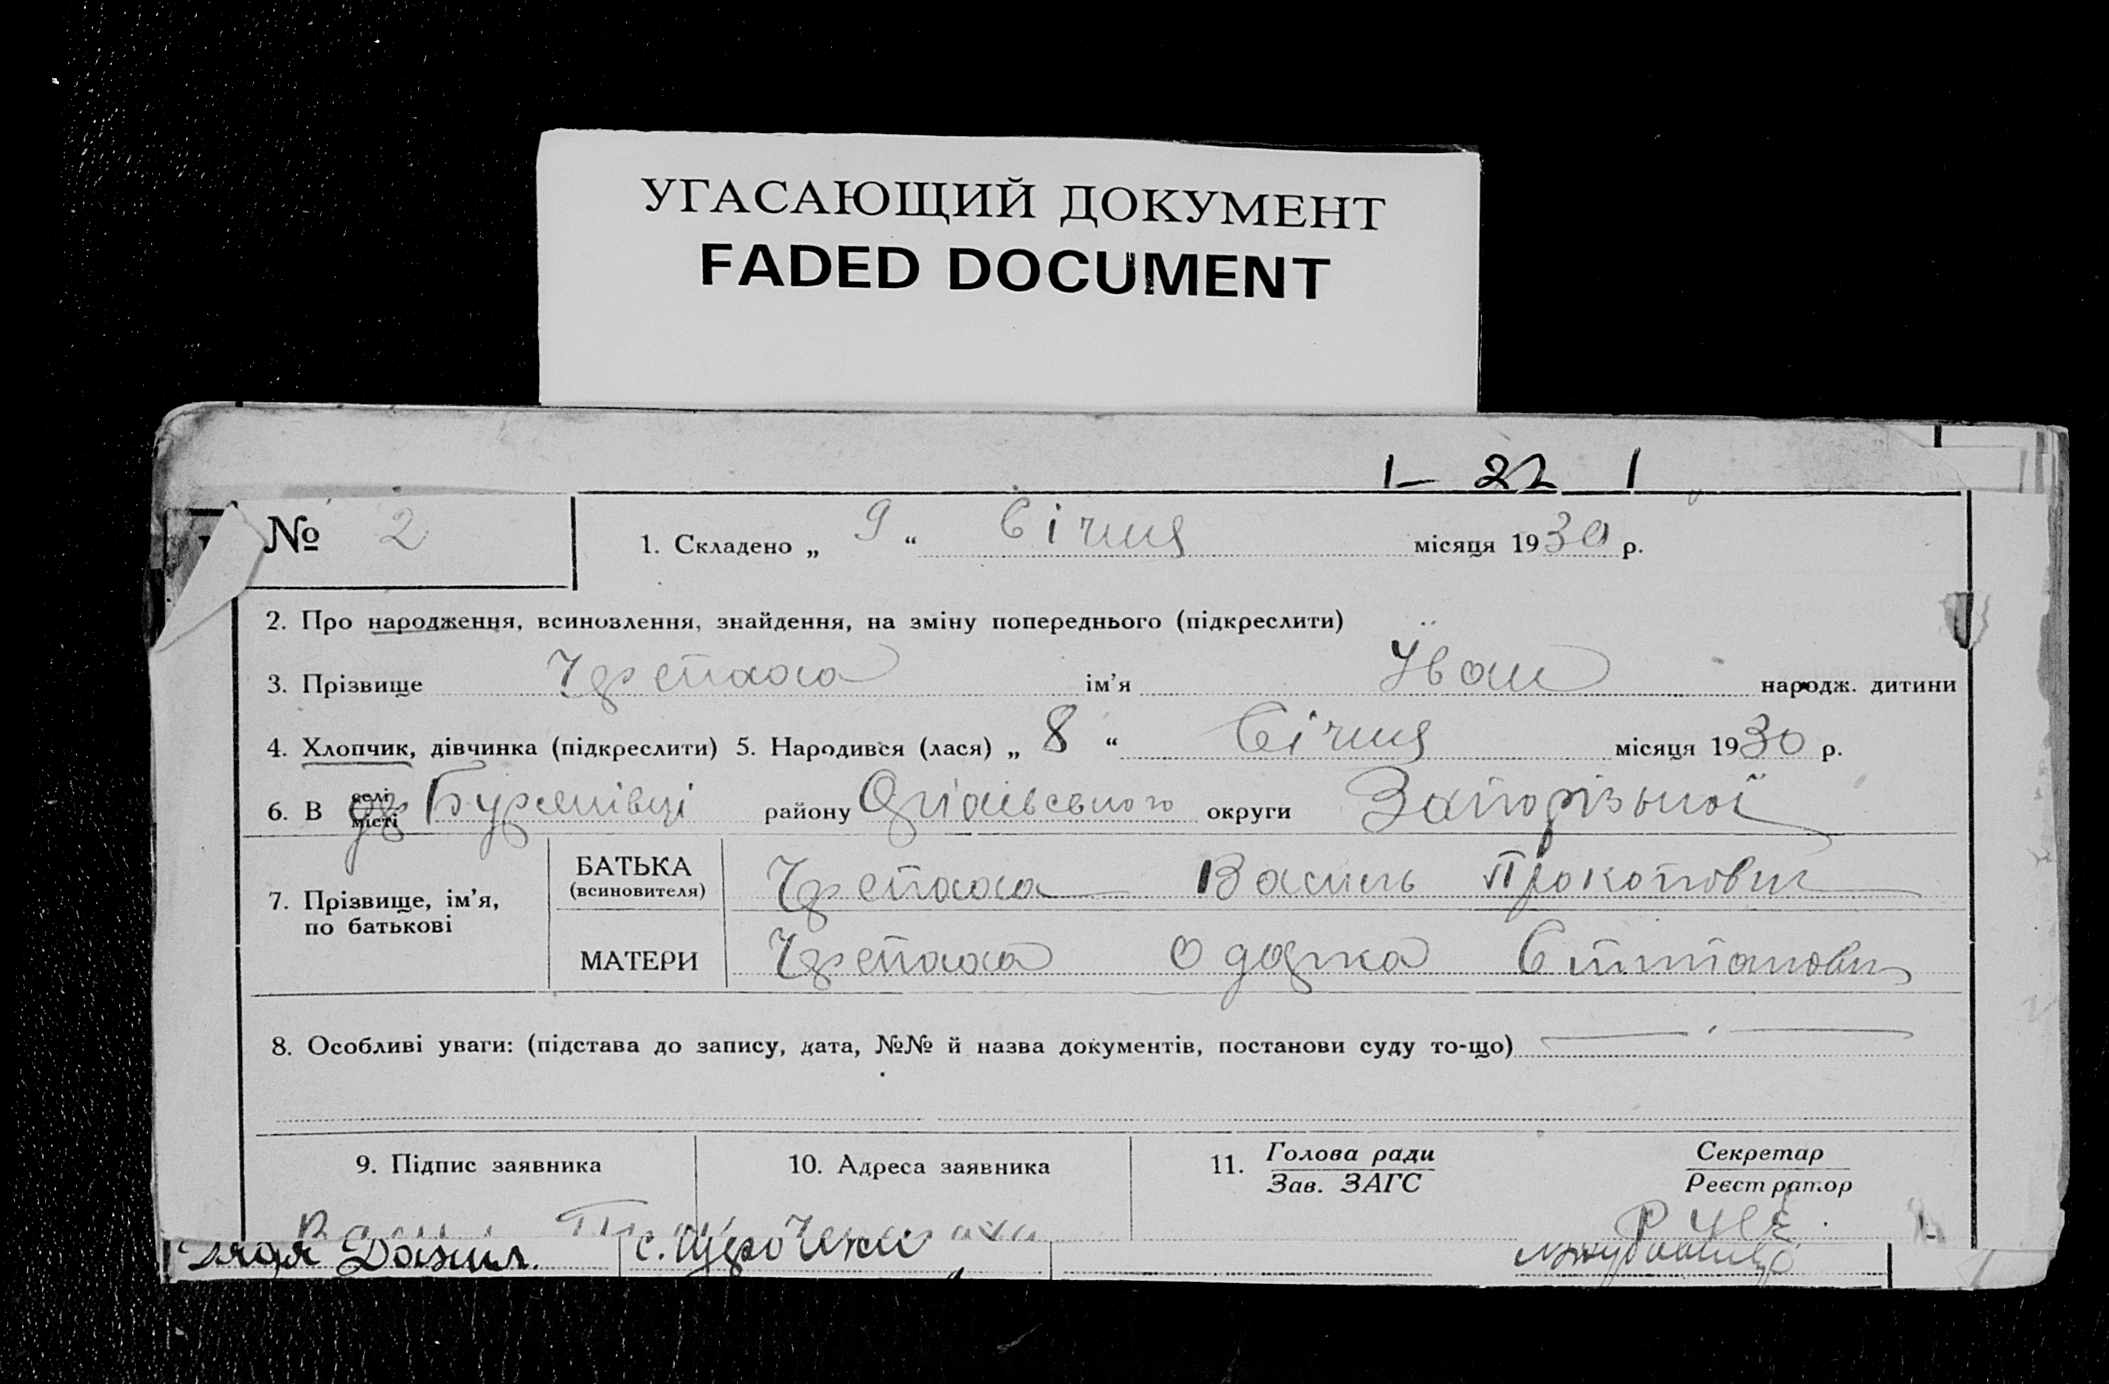 УГАСАЮЩИЙ ДОКУМЕНТ
FADED DOCUMENT
1- 22 1
№ 2
1. Складено „ 9 “ Січня місяця 1930 р.
2. Про народження, всиновлення, знайдення, на зміну попереднього (підкреслити)
3. Прізвище Черепаха ім’я Іван народж. дитини
4. Хлопчик, дівчинка (підкреслити) 5. Народився (лася) „ 8 “ Січня місяця 1930 р.
6. В селі місті району округи Запорізької
7. Прізвище, ім’я, по батькові
БАТЬКА (всиновителя) Черепаха Василь Прокопович
МАТЕРИ Черепаха Одарка
8. Особливі уваги: (підстава до запису, дата, №№ й назва документів, постанови суду то-що)
9. Підпис заявника
10. Адреса заявника
11. Голова ради Зав. ЗАГС
Секретар Реєстратор